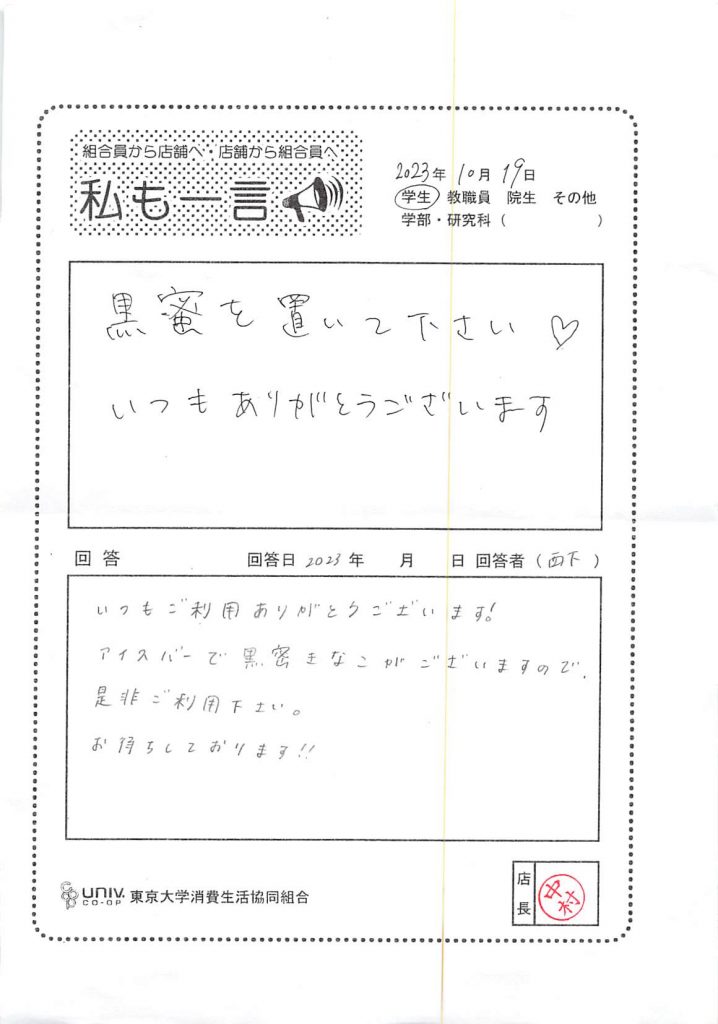 組合員から店舗へ・店舗から組合員へ
私も一言
2023年10月19日
学生 教職員 院生 その他
学部・研究科（ ）
黒蜜を置いて下さい♡
いつもありがとうございます
回答 回答日 2023年 月 日 回答者（西下）
いつもご利用ありがとうございます!
アイスバーで黒密きなこがございますので、
是非ご利用下さい。
お待ちしております!!
UNIV. CO-OP 東京大学消費生活協同組合
店長 中村